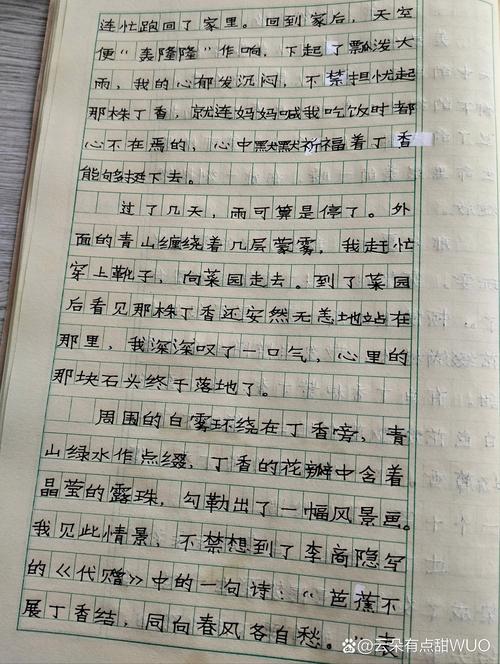 连忙跑回了家里。回到家后，天空
便“轰隆隆”作响，下起了飘泼大
雨，我的心郁发沉闷，不禁担忧起
那株丁香，就连妈妈喊我吃饭时都
心不在焉的，心中默默祈福着丁香
能够挺下去。
过了几天，雨可算是停了。外
面的青山缠绕着几层蒙雾，我赶忙
穿上靴子，向菜园走去。到了菜园
后看见那株丁香还安然无恙地站在
那里，我深深叹了一口气，心里的
那块石头终于落地了。
周围的白雾环绕在丁香旁，青
山绿水作点缀，丁香的花瓣中含着
晶莹的露珠，勾勒出了一幅风景画。
我见此情景，不禁想到了李商隐写
的《代赠》中的一句诗：“芭蕉不
展丁香结，同向春风各自愁。”我
@云朵有点甜WUO